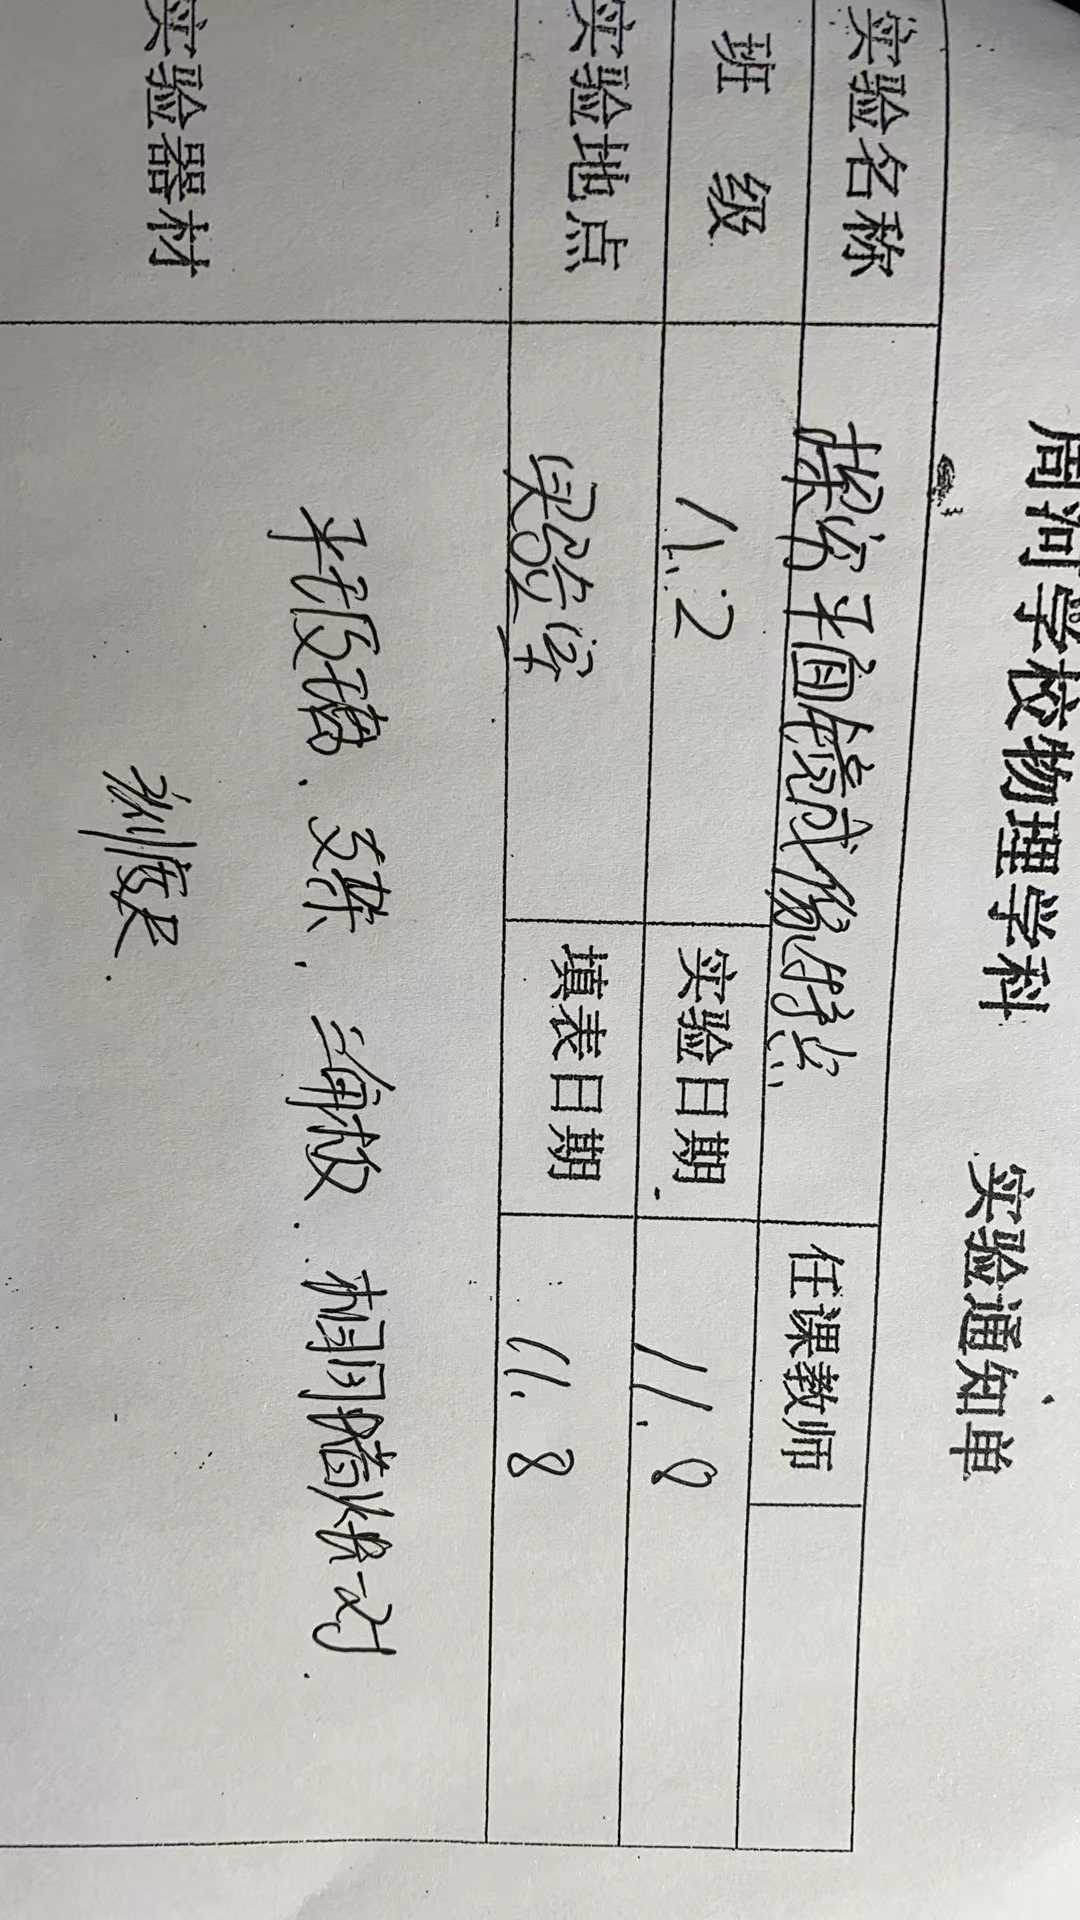 周河学校物理学科 实验通知单
实验名称 探究平面镜成像特点 任课教师
班 级 八.2 实验日期 11.8
实验地点 实验室 填表日期 11.8
实验器材 平板玻璃、支架、三角板、相同蜡烛一对、
刻度尺.